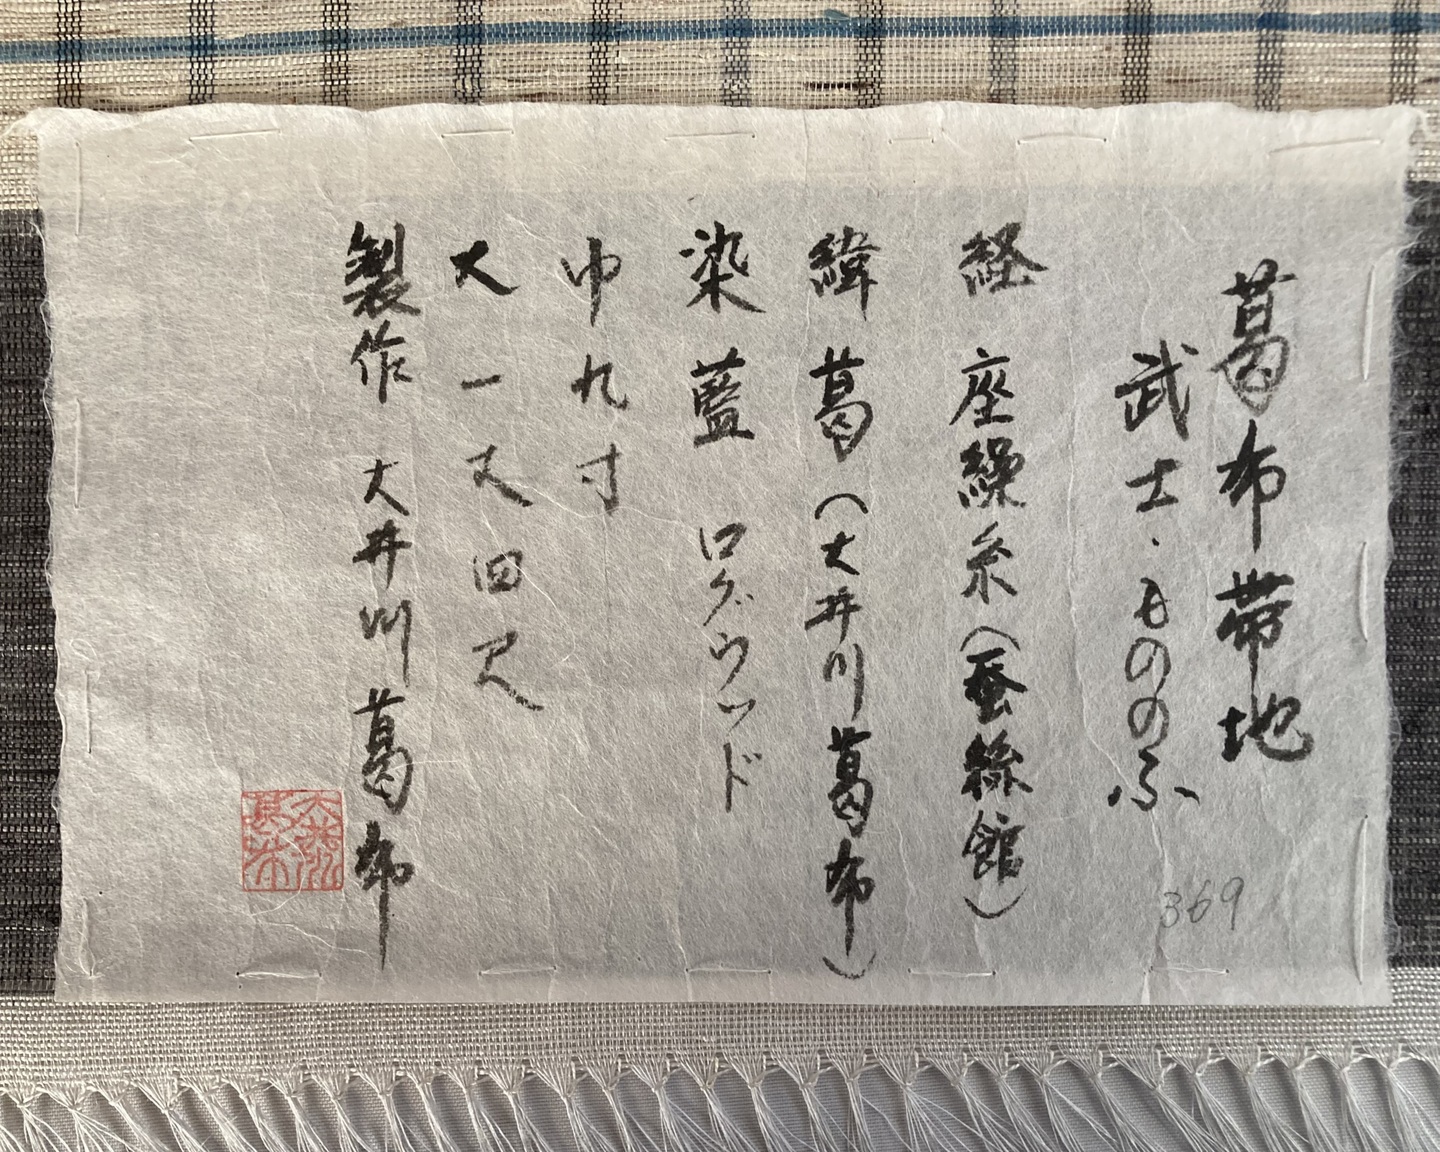 葛布帯地
武士・もののふ
経 座繰糸(蚕絲館)
緯 葛(大井川葛布)
染 藍 ログウッド
巾 九寸
大 一丈四尺
製作 大井川葛布
大井川
葛布
369